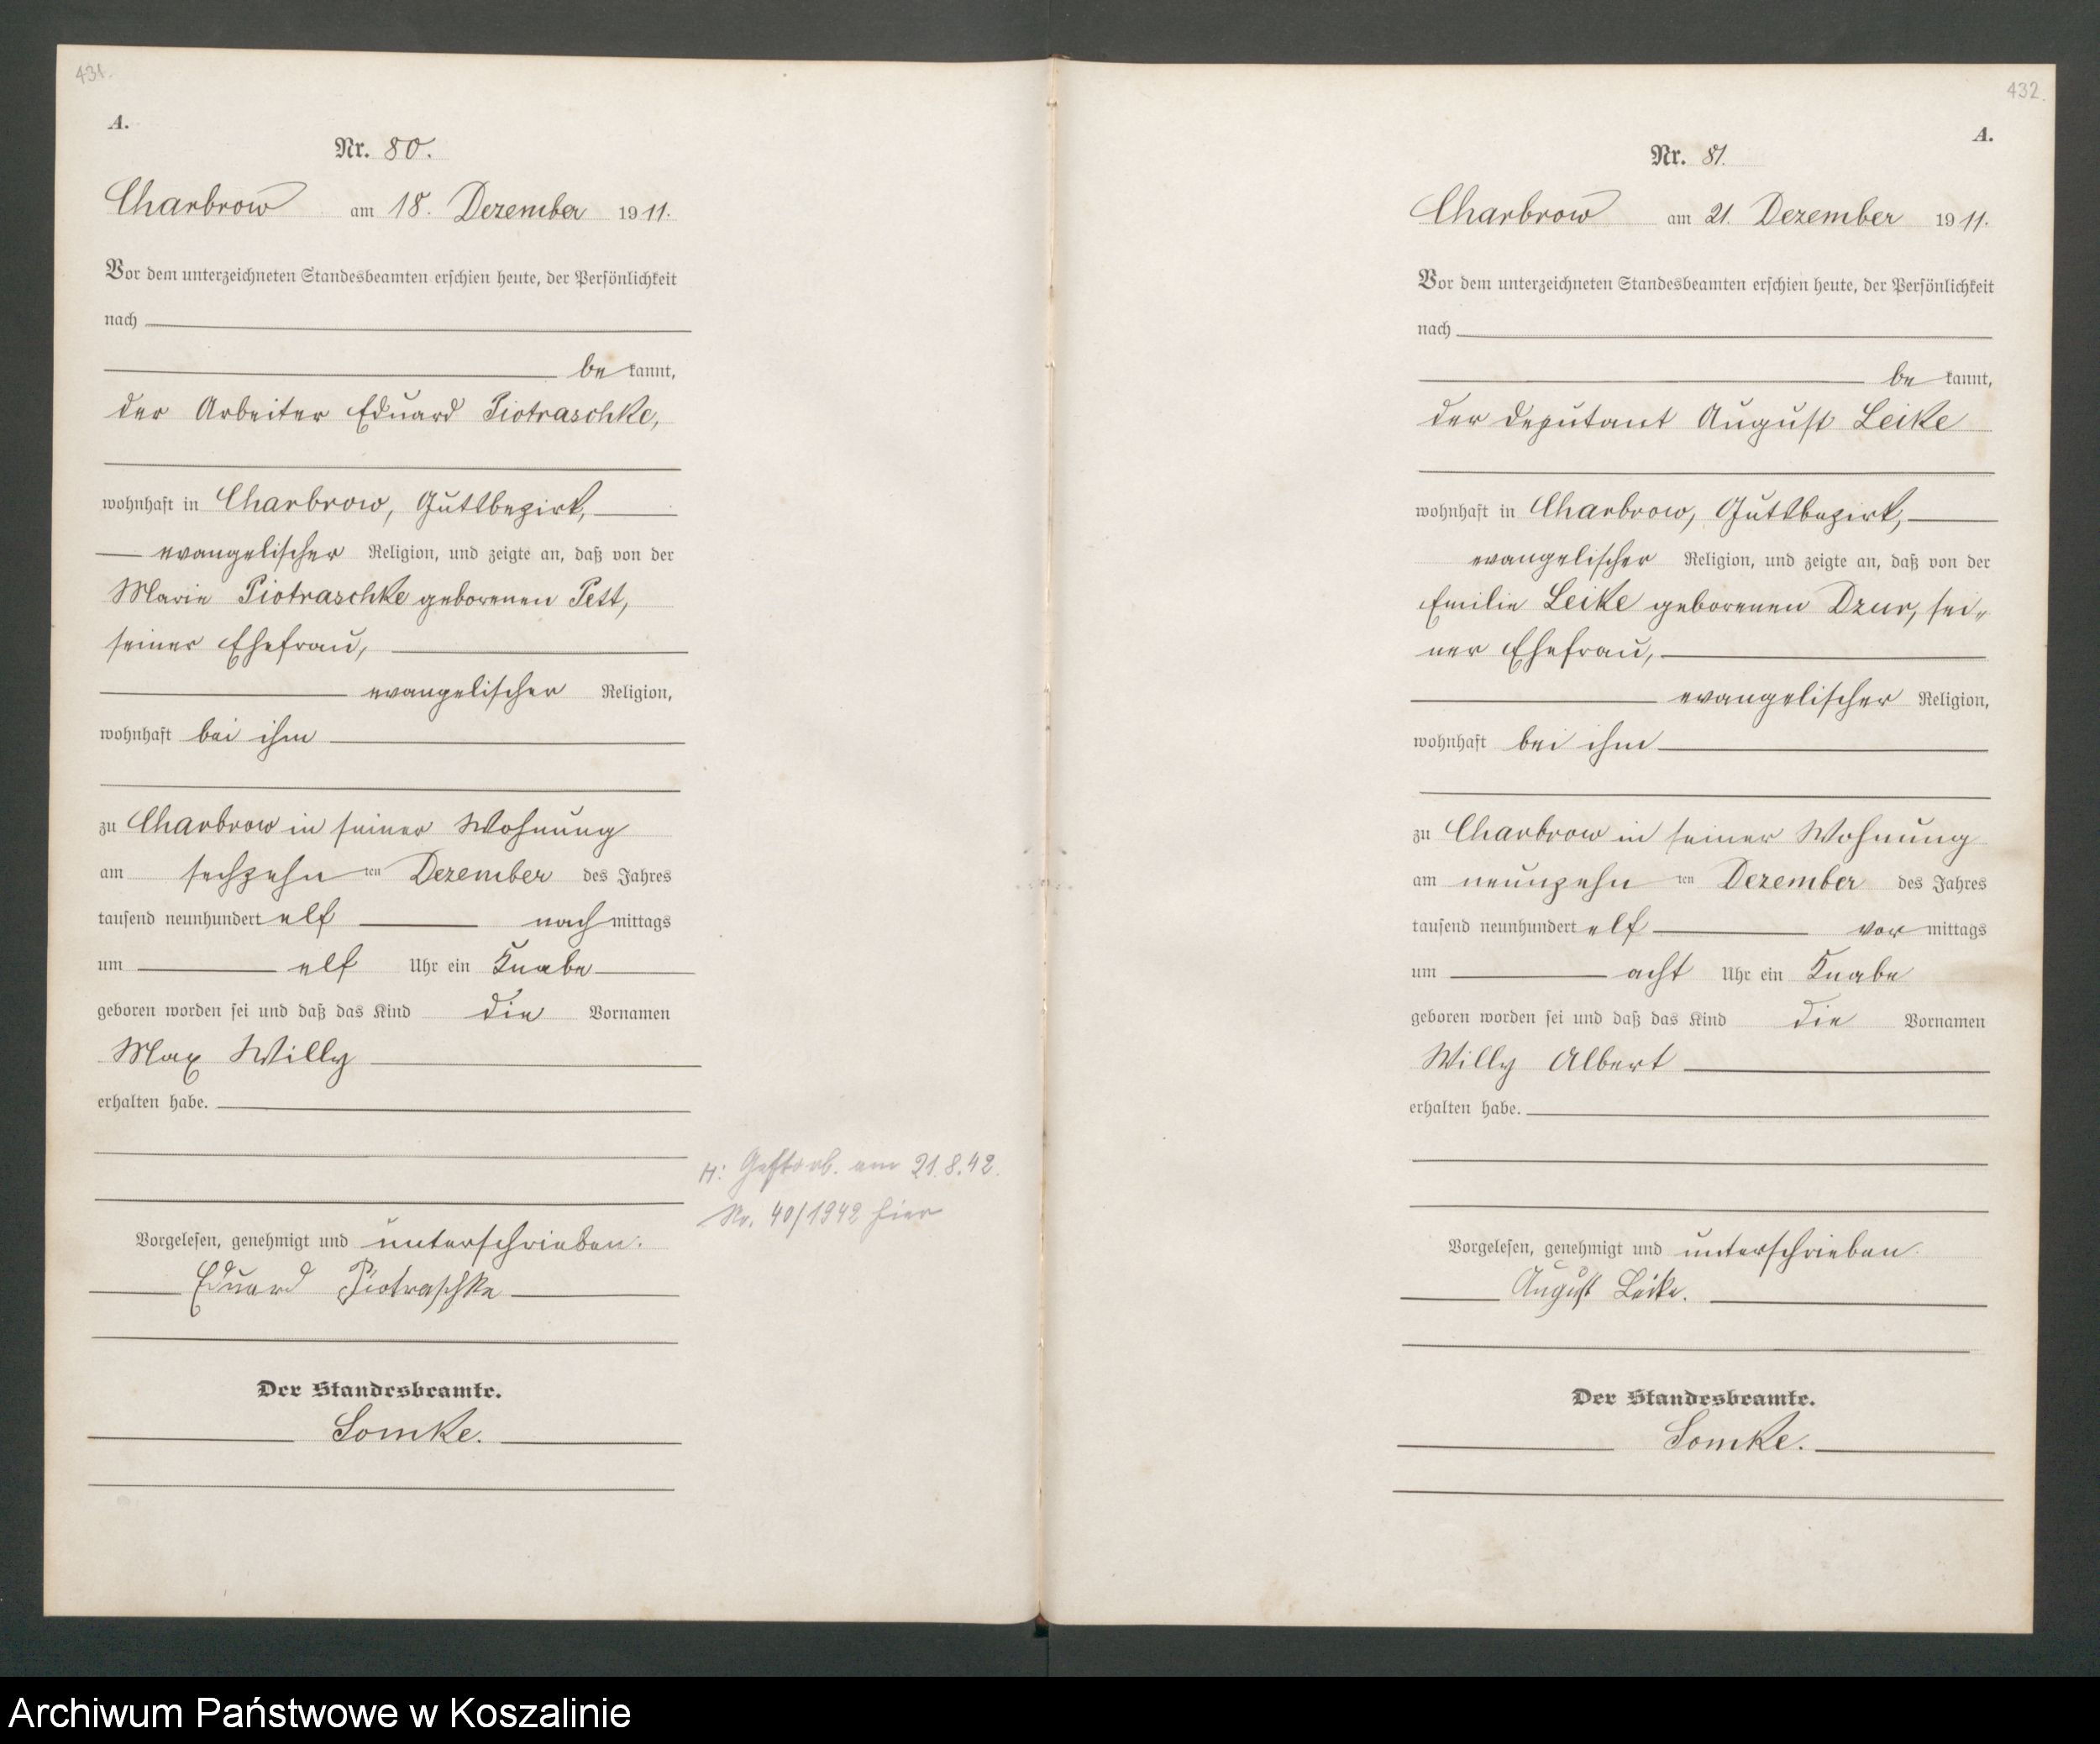 431.
A.
Nr. 80.
Charbrow am 18. Dezember 1911.
Vor dem unterzeichneten Standesbeamten erschien heute, der Persönlichkeit
nach
be kannt,
der Arbeiter Eduard Piotraschke,
wohnhaft in Charbrow, Gutsbezirk,
evangelischer Religion, und zeigte an, daß von der
Marie Piotraschke geborenen Pett,
seiner Ehefrau,
evangelischer Religion,
wohnhaft bei ihm
zu Charbrow in seiner Wohnung
am sechzehn ten Dezember des Jahres
tausend neunhundert elf nach mittags
um elf Uhr ein Knabe
geboren worden sei und daß das Kind die Vornamen
Max Willy
erhalten habe.
H: Gestorb. am 21.8.42.
Nr. 40/1942 hier
Vorgelesen, genehmigt und unterschrieben.
Eduard Piotraschke
Der Standesbeamte.
Somke.
432.
A.
Nr. 81.
Charbrow am 21. Dezember 1911.
Vor dem unterzeichneten Standesbeamten erschien heute, der Persönlichkeit
nach
be kannt,
der Deputant August Leike
wohnhaft in Charbrow, Gutsbezirk,
evangelischer Religion, und zeigte an, daß von der
Emilie Leike geborenen Dzur, sei-
ner Ehefrau,
evangelischer Religion,
wohnhaft bei ihm
zu Charbrow in seiner Wohnung
am neunzehn ten Dezember des Jahres
tausend neunhundert elf vor mittags
um acht Uhr ein Knabe
geboren worden sei und daß das Kind die Vornamen
Willy Albert
erhalten habe.
Vorgelesen, genehmigt und unterschrieben.
August Leike.
Der Standesbeamte.
Somke.
Archiwum Państwowe w Koszalinie